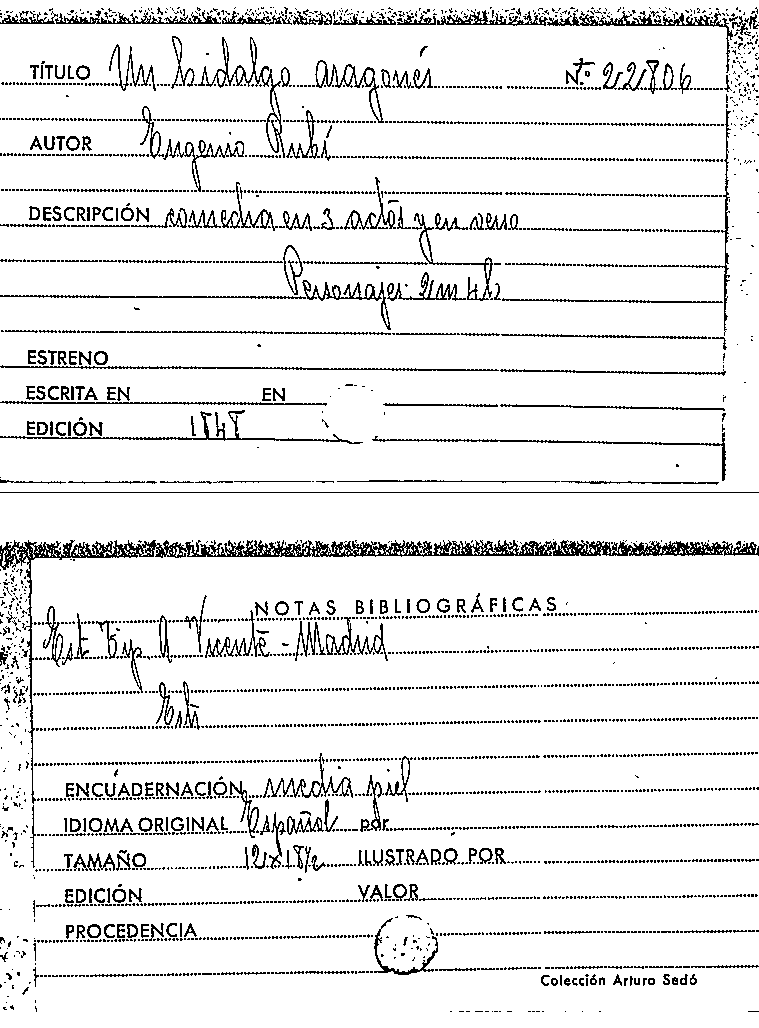 TÍTULO Un hidalgo aragonés Nº 22806
AUTOR Eugenio Rubí
DESCRIPCIÓN comedia en 3 actos y en verso
Personajes 2 m 4 h
ESTRENO
ESCRITA EN EN
EDICIÓN 1848
NOTAS BIBLIOGRÁFICAS
Est Tip A Vicente - Madrid
ENCUADERNACIÓN media piel
IDIOMA ORIGINAL Español por
TAMAÑO 12x18½ ILUSTRADO POR
EDICIÓN VALOR
PROCEDENCIA
Colección Arturo Sedó